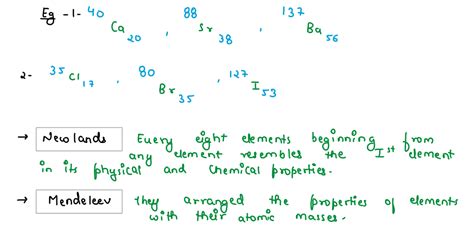 Eg -1- 40 Ca 20 , 88 Sr 38 , 137 Ba 56
2- 35 Cl 17 , 80 Br 35 , 127 I 53
→ Newlands Every eight elements beginning from
any element resembles the Ist element
in its physical and chemical properties.
→ Mendeleev They arranged the properties of elements
with their atomic masses.